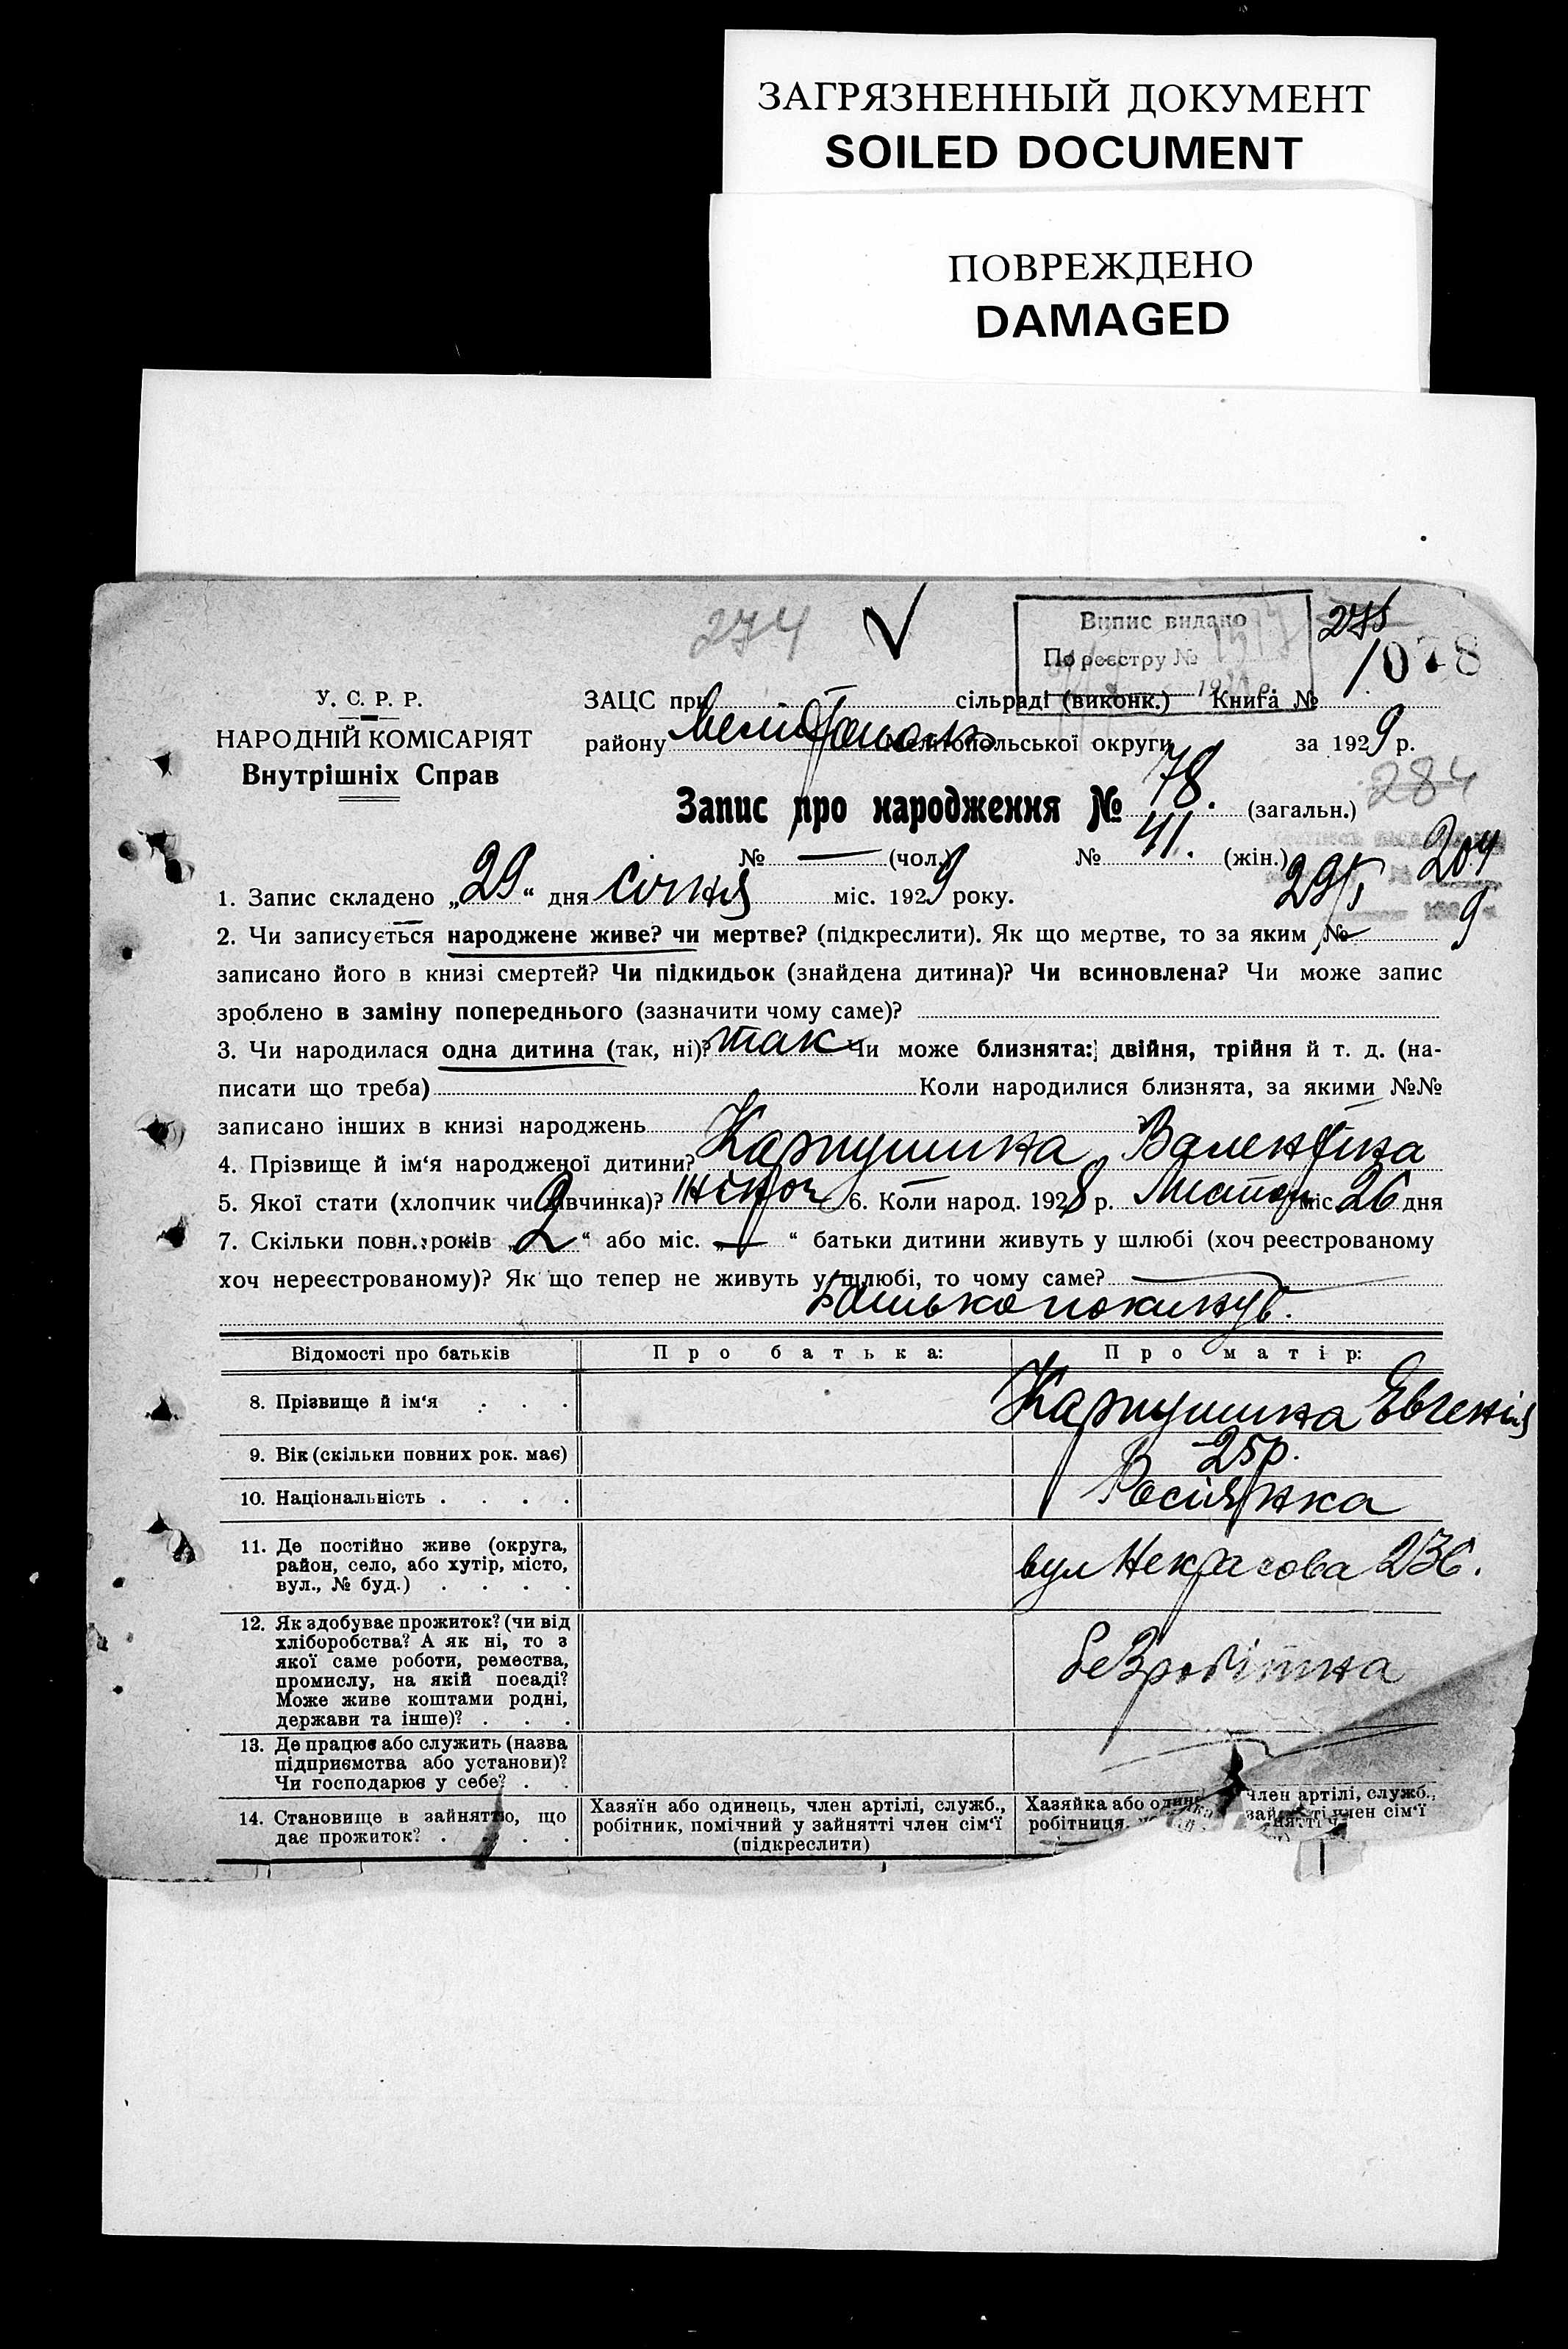 ЗАГРЯЗНЕННЫЙ ДОКУМЕНТ
SOILED DOCUMENT
ПОВРЕЖДЕНО
DAMAGED
274
Випис видано
275
По реєстру №
1078
У. С. Р. Р.
НАРОДНІЙ КОМІСАРІЯТ
Внутрішніх Справ
ЗАЦС при сільраді (виконк.) Книга №
району Мелітополь Мелітопольської округи за 1929 р.
284
Запис про народження № 78. (загальн.)
№ — (чол.) № 41. (жін.)
204
9
295
1. Запис складено „29“ дня січня міс. 1929 року.
2. Чи записується народжене живе? чи мертве? (підкреслити). Як що мертве, то за яким №
записано його в книзі смертей? Чи підкидьок (знайдена дитина)? Чи всиновлена? Чи може запис
зроблено в заміну попереднього (зазначити чому саме)?
3. Чи народилася одна дитина (так, ні)? так Чи може близнята: двійня, трійня й т. д. (на-
писати що треба) Коли народилися близнята, за якими №№
записано інших в книзі народжень
4. Прізвище й ім‘я народженої дитини? Карпушина Валентина
5. Якої стати (хлопчик чи дівчинка)? жіноч 6. Коли народ. 1928 р. Листоп міс. 26 дня
7. Скільки повн. років „2“ або міс. „—“ батьки дитини живуть у шлюбі (хоч реєстрованому
хоч нереєстрованому)? Як що тепер не живуть у шлюбі, то чому саме?
Батько покинув.
Відомості про батьків Про батька: Про матір:
8. Прізвище й ім‘я . . . Карпушина Євгенія
9. Вік (скільки повних рок. має) 25р.
10. Національність . . . . Росіянка
11. Де постійно живе (округа,
район, село, або хутір, місто,
вул., № буд.) . . . .
вул Некрасова 236.
12. Як здобуває прожиток? (чи від
хліборобства? А як ні, то з
якої саме роботи, ремества,
промислу, на якій посаді?
Може живе коштами родні,
держави та інше)? . . .
безробітна
13. Де працює або служить (назва
підприємства або установи)?
Чи господарює у себе? . .
14. Становище в зайняттю, що
дає прожиток? . . . .
Хазяїн або одинець, член артілі, служб.,
робітник, помічний у зайнятті член сім‘ї
(підкреслити)
Хазяйка або член артілі, служб.,
робітниця, член сім‘ї